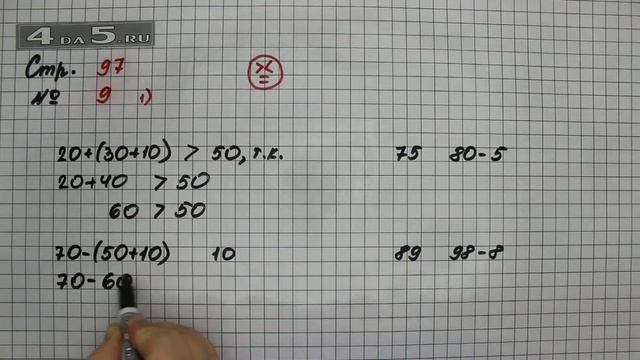 4DA5.RU
Стр. 97
><
=
№ 9 1)
20+(30+10) > 50, т.к.
20+40 > 50
60 > 50
75 80-5
70-(50+10) 10
70-60
89 98-8